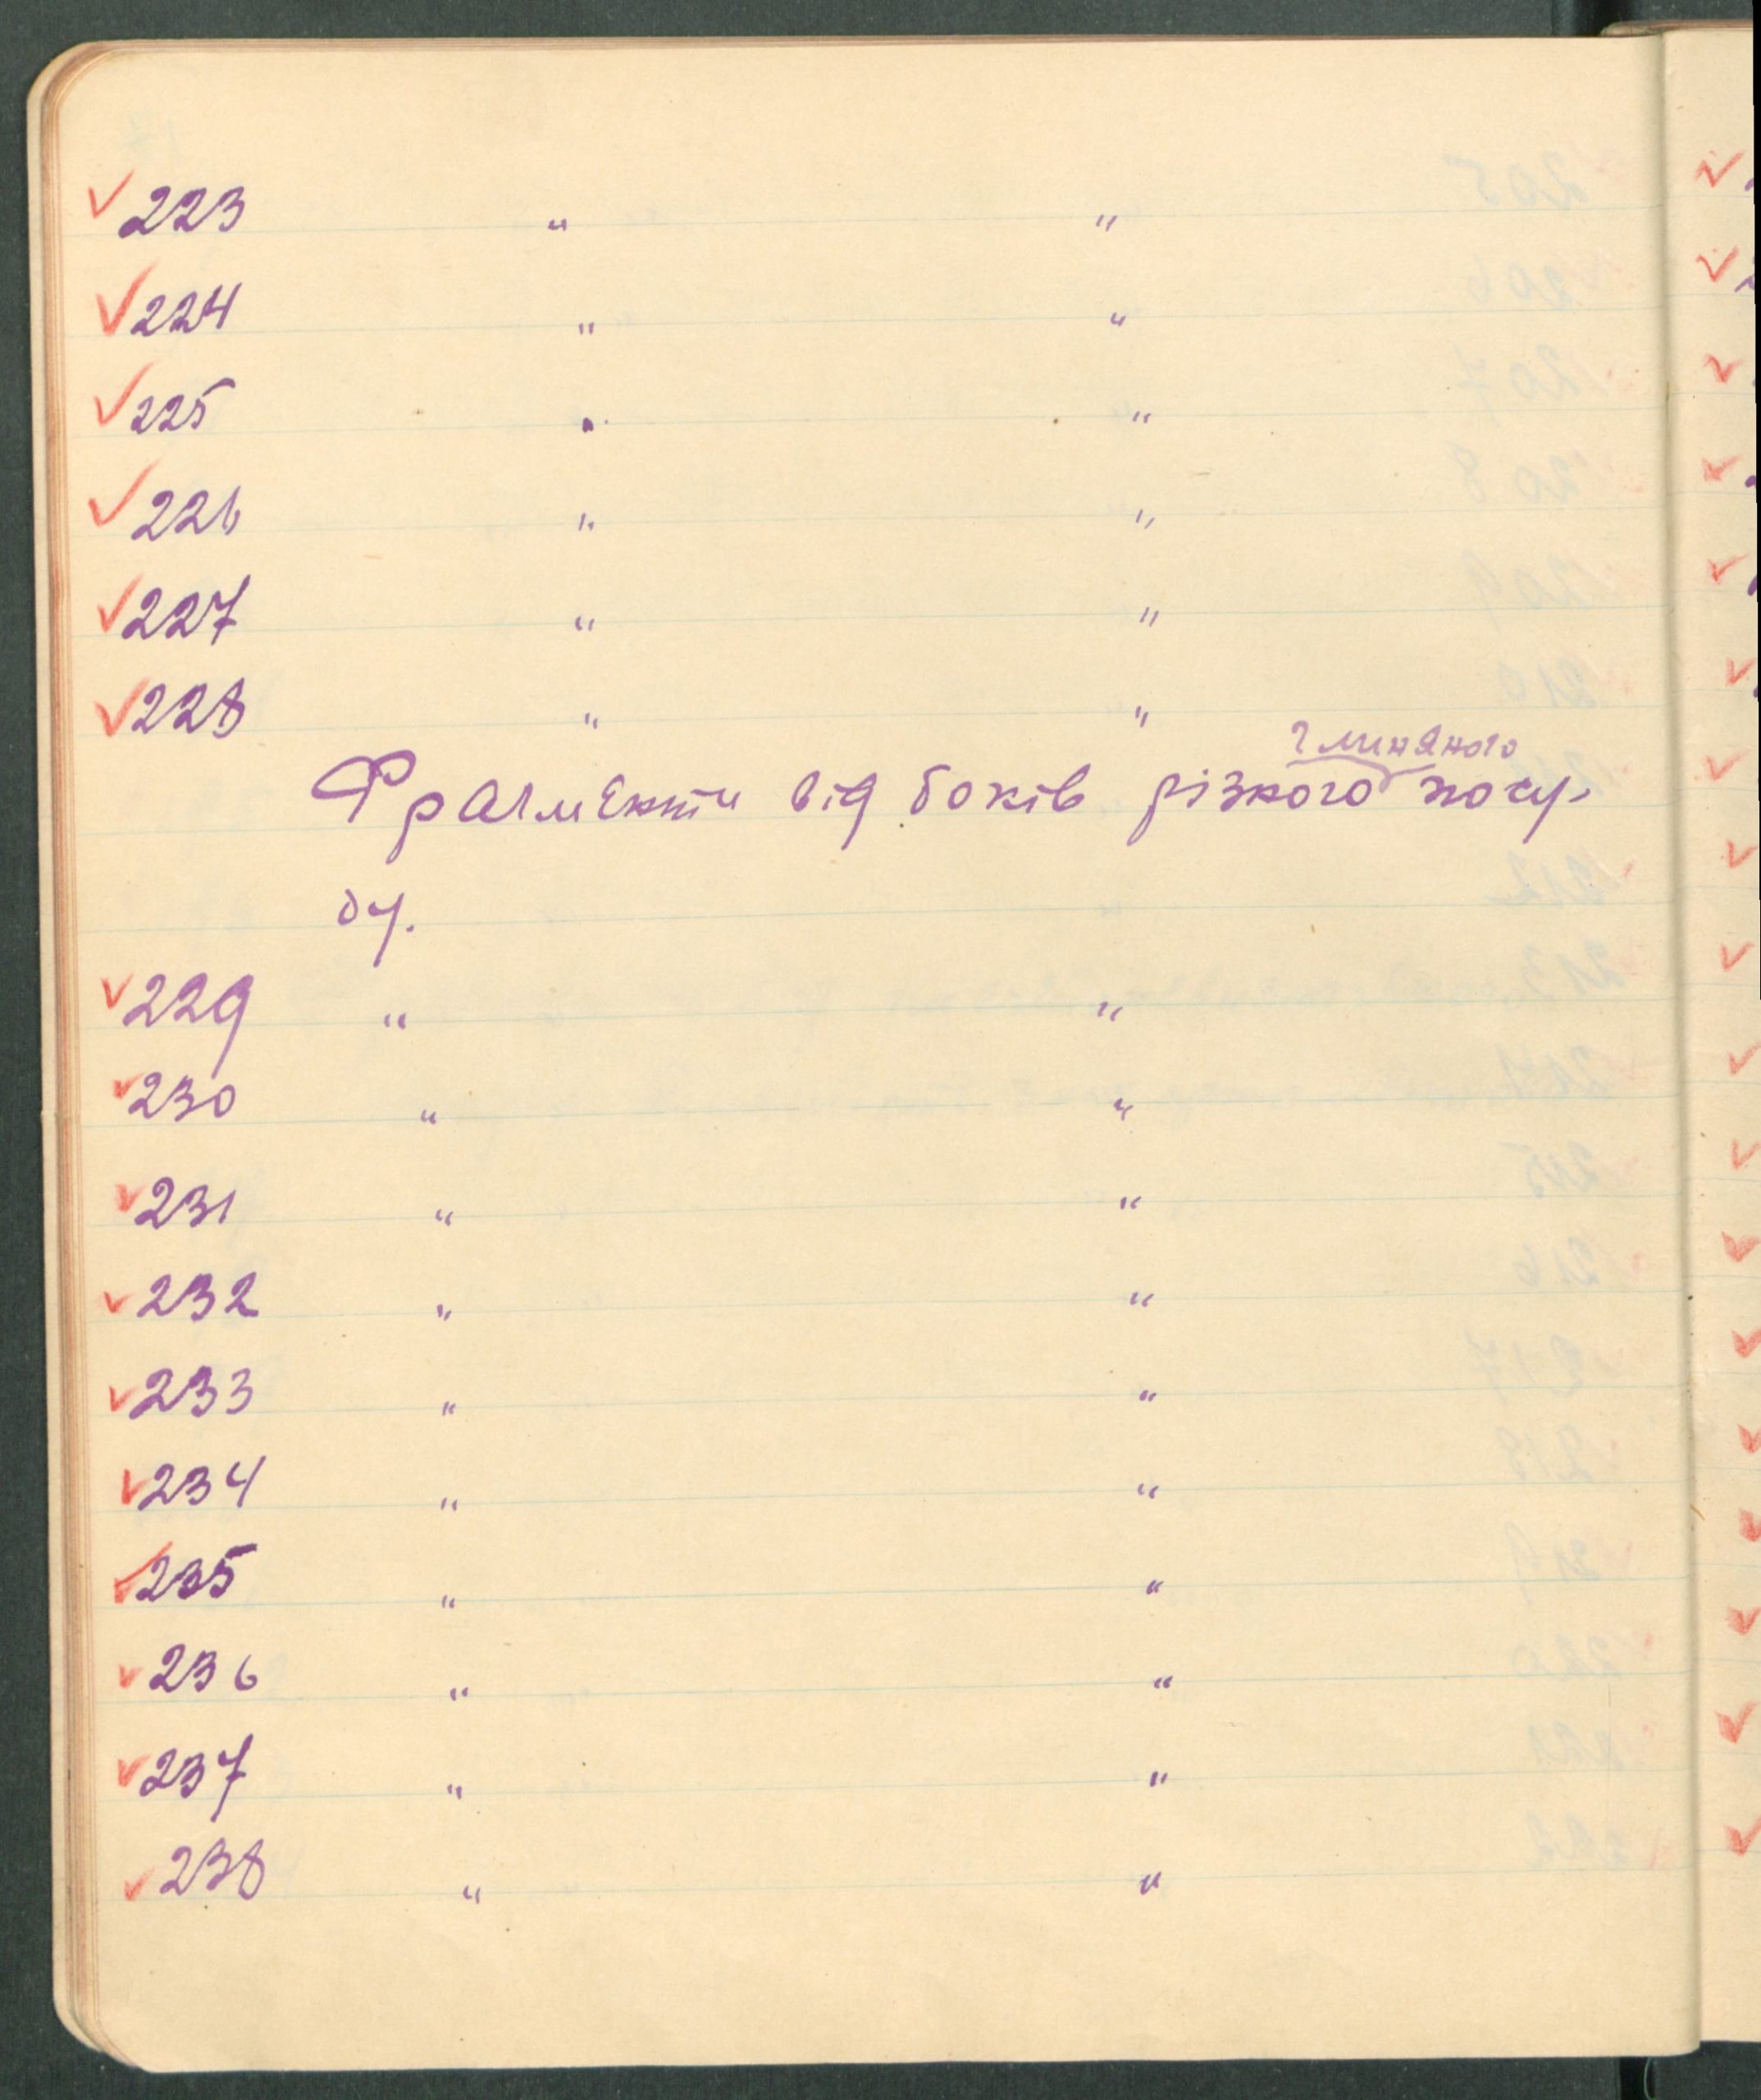 ✓ 223 " "
✓ 224 " "
✓ 225 " "
✓ 226 " "
✓ 227 " "
✓ 228 " "
глиняного
Фрагменти від боків різного посу-
ду.
✓ 229 " "
✓ 230 " "
✓ 231 " "
✓ 232 " "
✓ 233 " "
✓ 234 " "
✓ 235 " "
✓ 236 " "
✓ 237 " "
✓ 238 " "